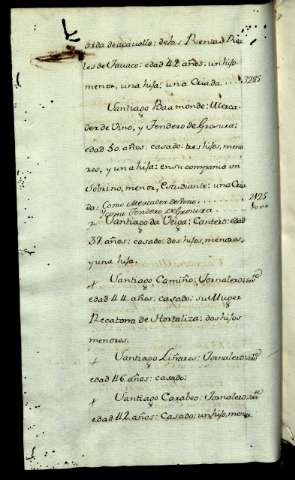 Guarda de acavallo: de las Rentas Rea
les de Tavaco: edad 42 años: un hijo
menor, una hija: una Criada. . . . . 3285
Santiago Baamonde: Merca-
der de Vino, y Tendero de Grosura:
edad 50 años: casado: tres hijos, meno
res, y una hija: en su compania un
Sobrino, menor, Estudiante: una Cria
da: Como Mercader de vino . . . . 2125
y como Tendero de Grosura . . . .
+ Santiago da Veiga: Cantero: edad
37 años: casado: dos hijos, menores,
y una hija.
+ Santiago Camiño: Jornalero:
edad 44 años: casado: su Muger
Recatona de Hortaliza: dos hijos
menores.
+ Santiago Liñares: Jornalero:
edad 46 años: casado.
+ Santiago Carabeo: Jornalero:
edad 42 años: Casado: un hijo, menor